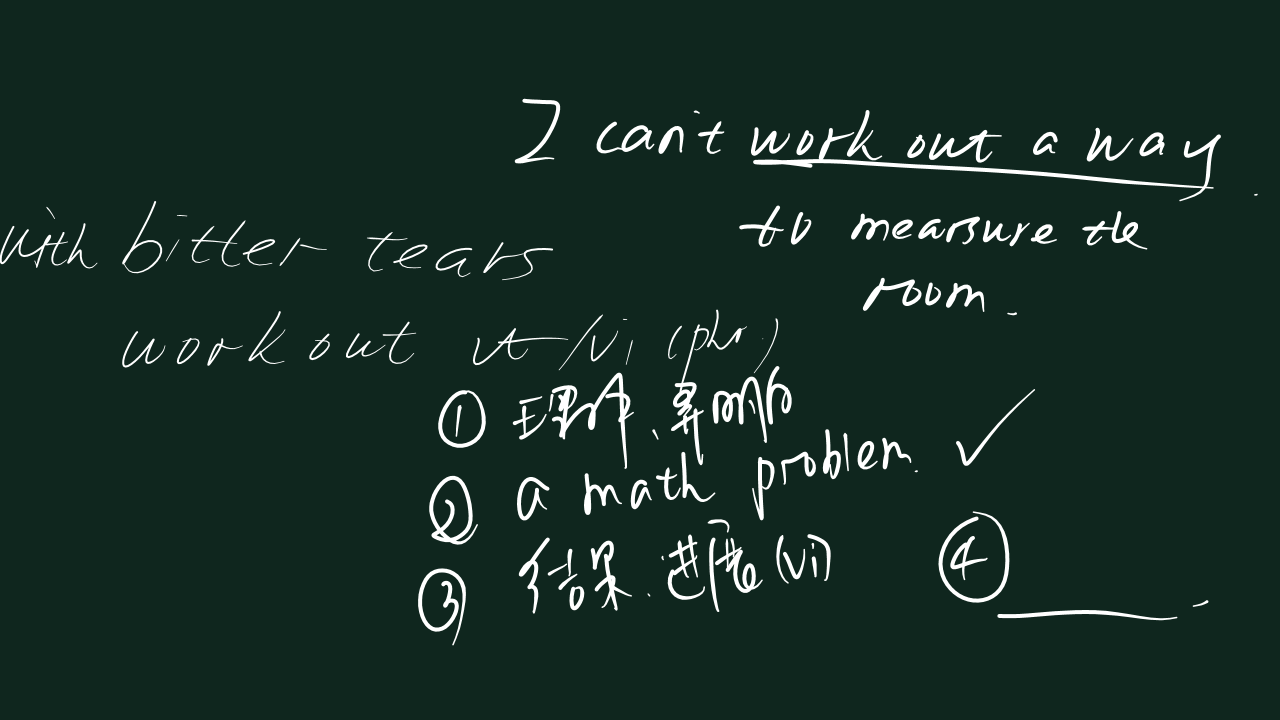 I can't work out a way
to mearsure the
room.
with bitter tears
work out vt/vi (phr.)
① 理解、弄明白
② a math problem.
③ 结果、进展(vi)
④